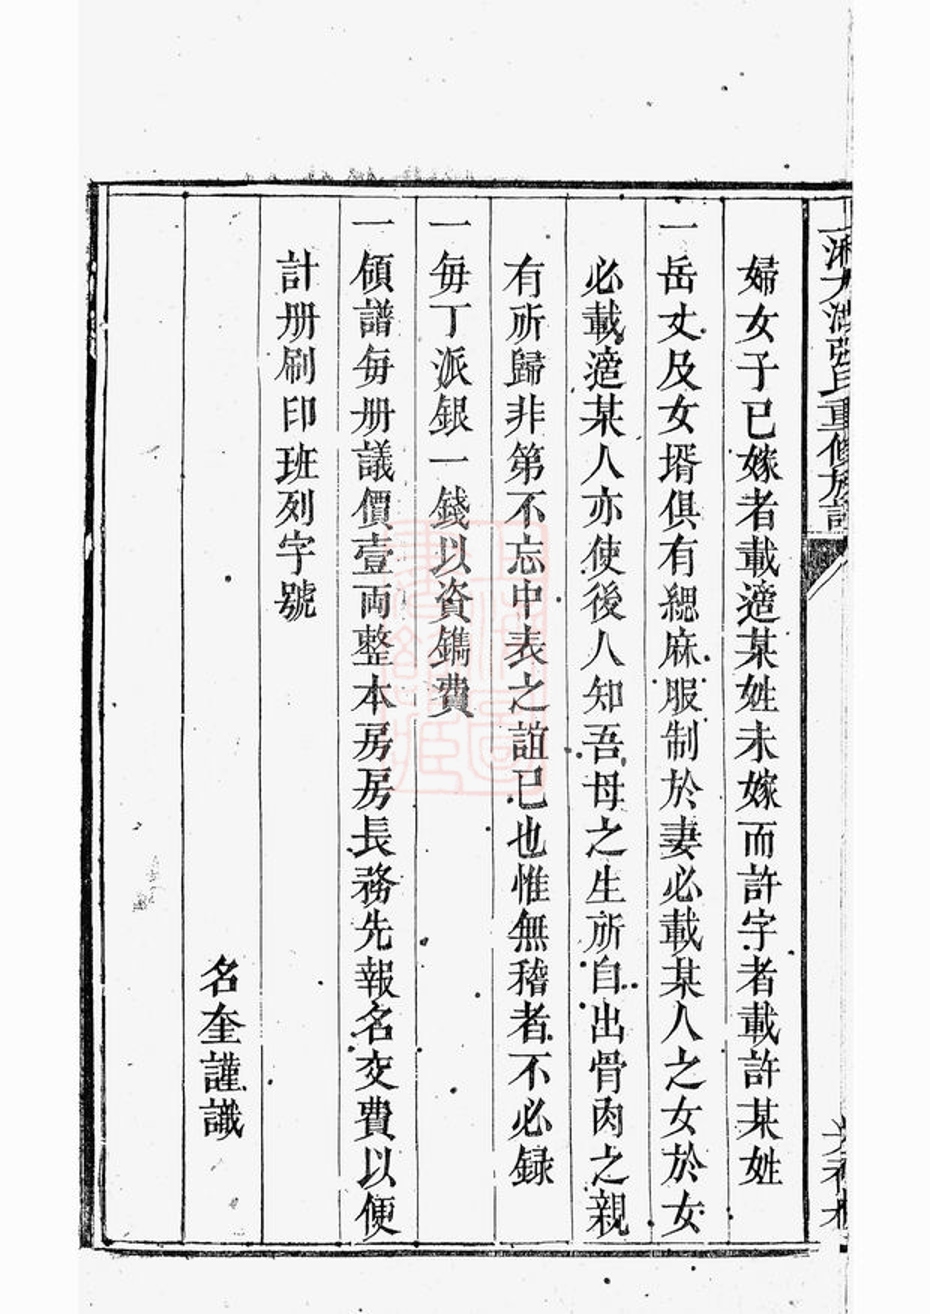 婦女子已嫁者載適某姓未嫁而許字者載許某姓
一岳丈及女壻俱有緦麻服制於妻必載某人之女於女
必載適某人亦使後人知吾母之生所自出骨肉之親
有所歸非第不忘中表之誼已也惟無稽者不必録
一每丁派銀一錢以資鐫費
一領譜每册議價壹両整本房房長務先報名交費以便
計册刷印班列字號
名奎謹識